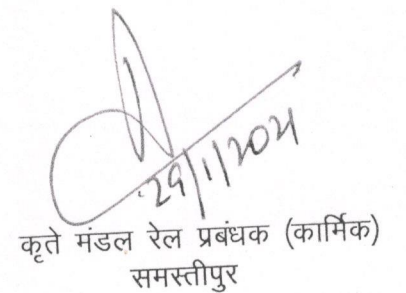 29/1/2021
कृते मंडल रेल प्रबंधक (कार्मिक)
समस्तीपुर